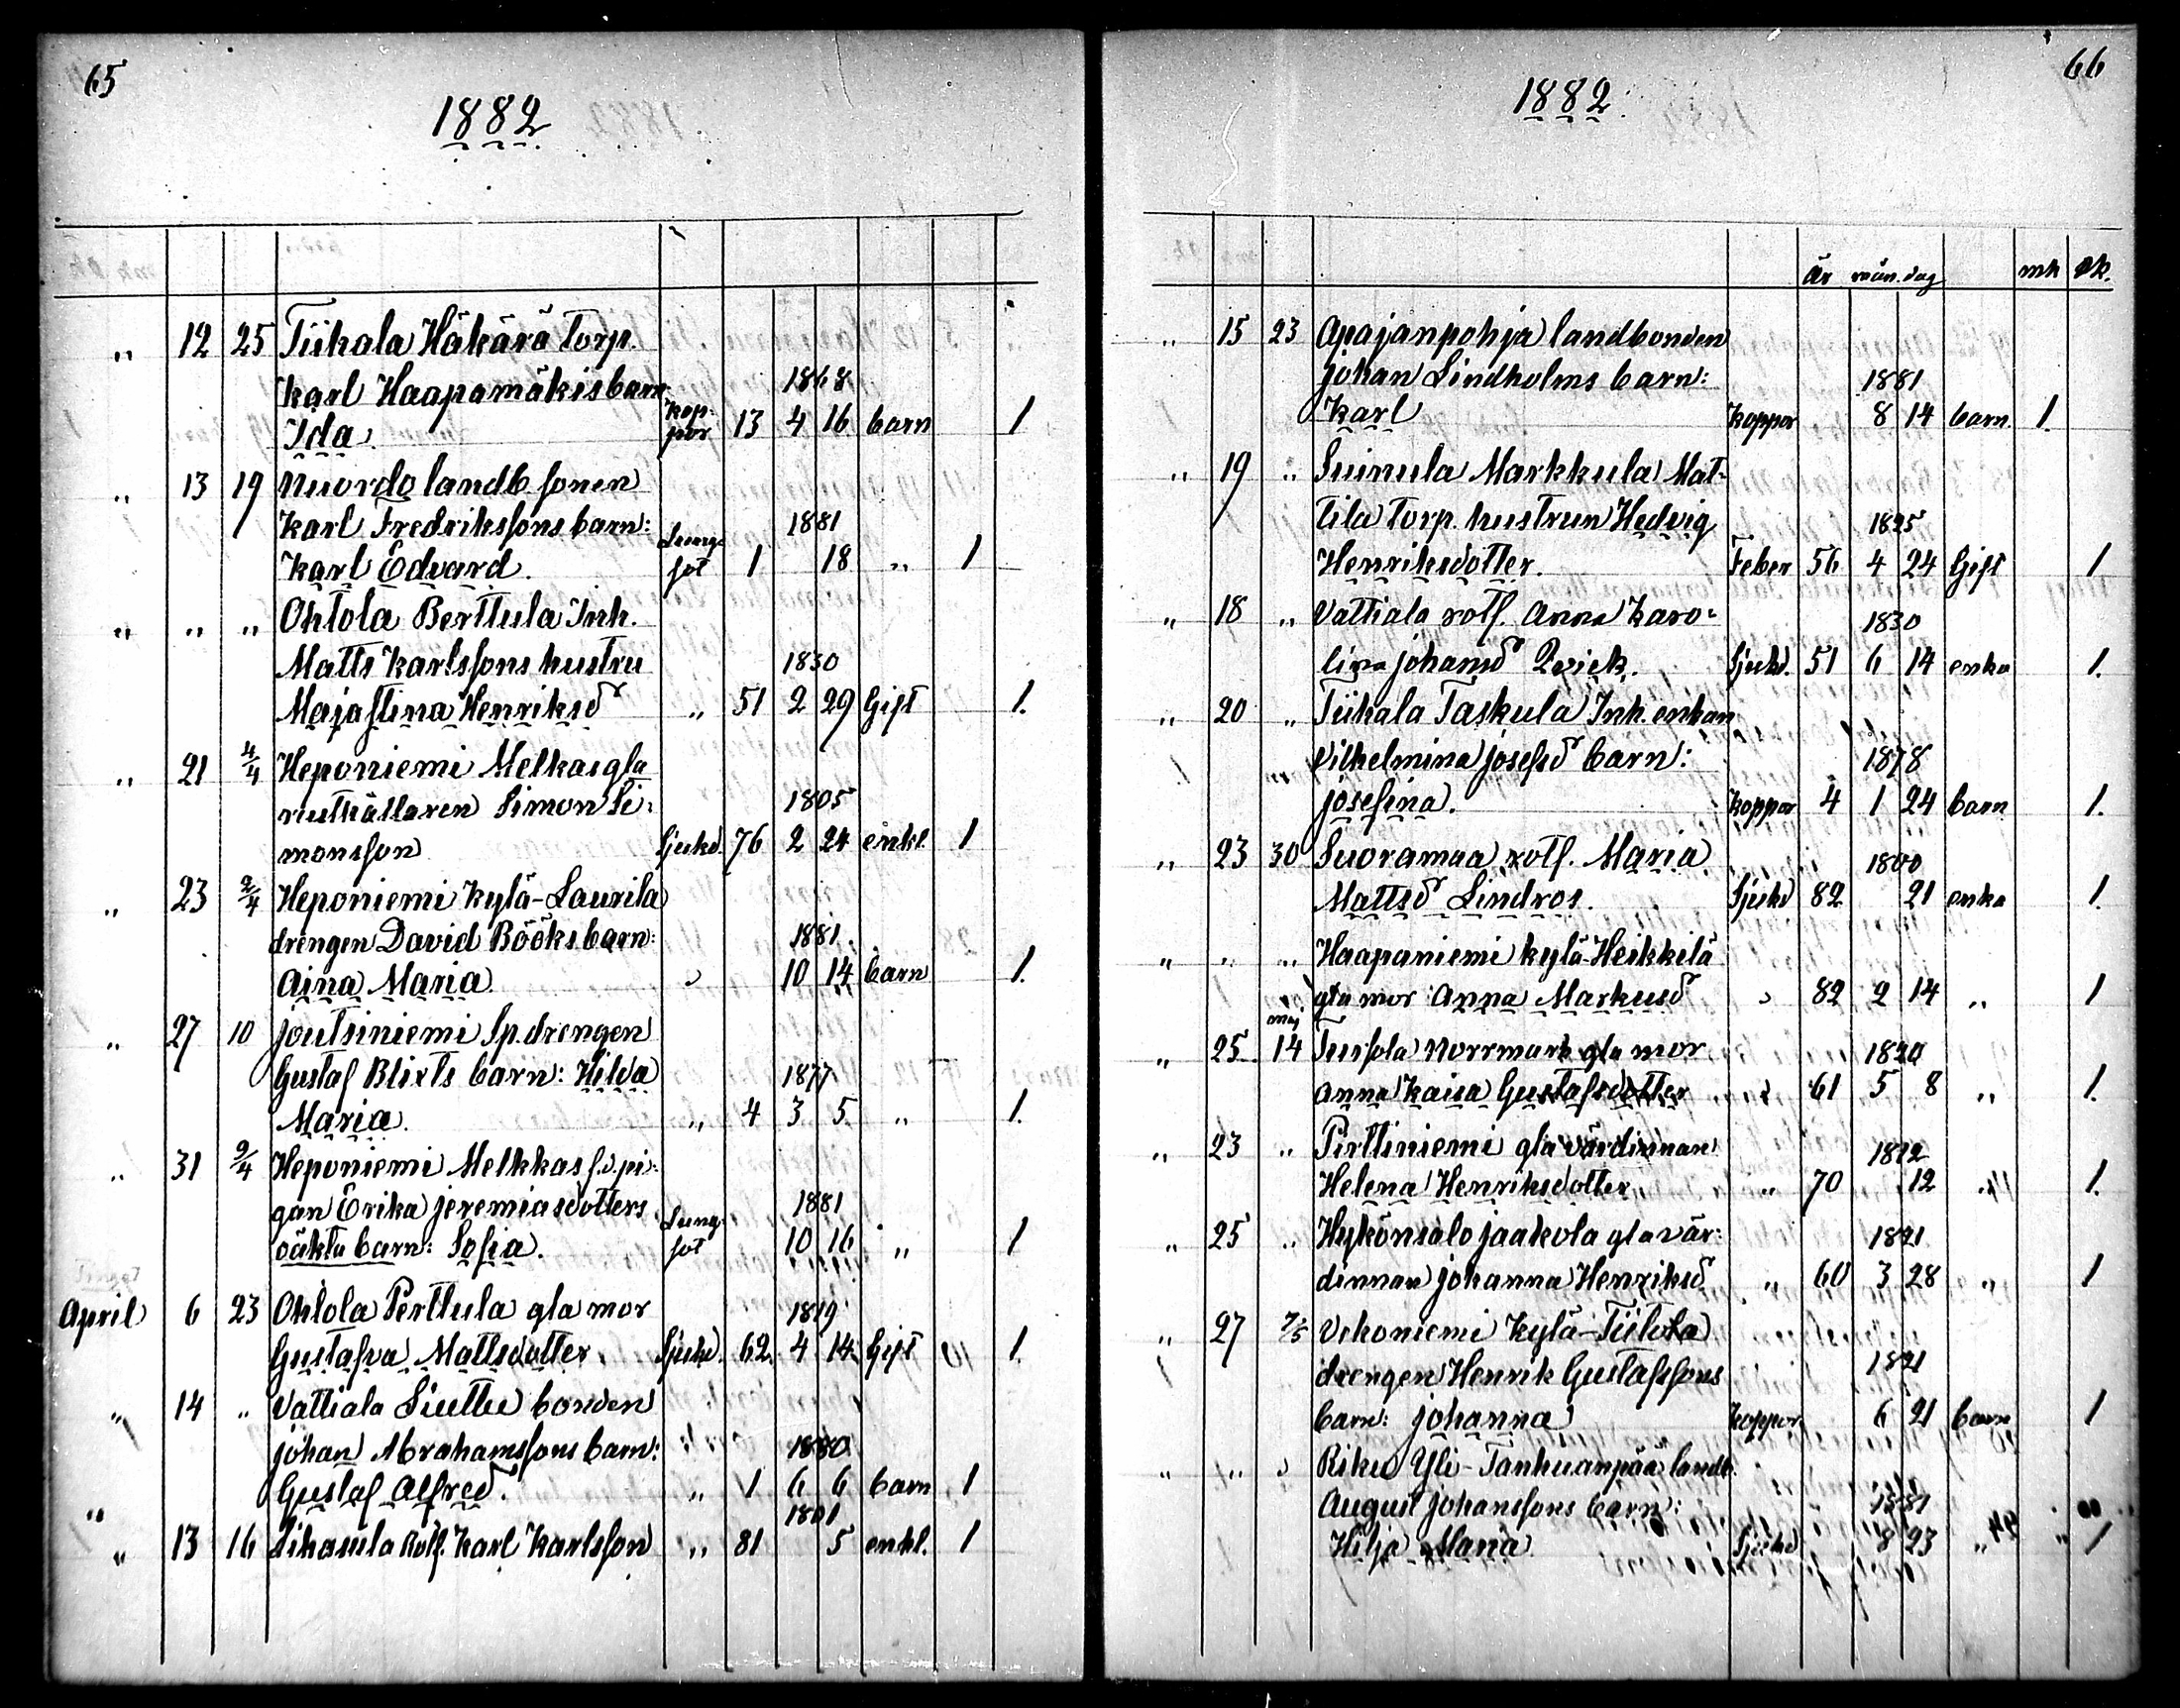 65
1882
„ 12 25 Tiihala Häkärä torp.
Karl Haapamäkis barn 1868
Ida. Koppor 13 4 16 barn 1
„ 13 19 Nuordo landb. sonen
Karl Fredrikssons barn: 1881
Karl Edvard. Lungsot 1 18 „ 1
„ „ „ Ohtola Berttula Inh.
Matts Karlssons hustru 1830
Maja Stina Henriksd „ 51 2 29 Gift 1.
„ 21 4/4 Heponiemi Melkas gla
ruthållaren Simon Si- 1805
monsson Sjukd. 76 2 24 enkl. 1
„ 23 2/4 Heponiemi Kylä-Laurila
drengen David Bööks barn: 1881.
Aina Maria. „ 10 14 barn 1.
„ 27 10 Joutsiniemi Sp. drengen
Gustaf Blixts barn: Hilda 1877
Maria. „ 4 3 5 „ 1.
„ 31 9/4 Heponiemi Melkkas f.d. pi-
gan Erika Jeremiasdotters 1881
oäkta barn: Sofia. Lungsot 10 16 „ 1
April 6 23 Ohtola Perttula gla mor 1819
Gustafva Mattsdotter. Sjukd. 62 4 14 Gift 1.
„ 14 „ Vattiala Siuttu bonden
Johan Abrahamssons barn: 1880
Gustaf Alfred. „ 1 6 6 barn 1
„ 1801
„ 13 16 Lihasula Rotf. Karl Karlsson „ 81 5 enkl. 1
66
1882.
År mån. dag mk pk.
„ 15 23 Apajanpohja landbonden
Johan Lindholms barn: 1881
Karl Koppor 8 14 barn 1.
„ 19 „ Suinula Markkula Mat-
tila torp. hustrun Hedvig 1825
Henriksdotter. Feber 56 4 24 Gift 1
„ 18 „ Vattiala rotf. Anna Karo- 1830
lina Johansd Qvick. Sjukd. 51 6 14 enka 1.
„ 20 „ Tiihala Taskula Inh. enkan
Vilhelmina Josefsd barn: 1878
Josefina. Koppor 4 1 24 barn 1.
„ 23 30 Suoramaa rotf. Maria 1800
Mattsd Lindros. Sjukd 82 21 enka 1.
„ „ „ Haapaniemi Kylä-Heikkilä
gla mor Anna Markusd „ 82 2 14 „ 1
maj
„ 25 14 Norrmark gla mor 1820
Anna Kaisa Gustafsdotter „ 61 5 8 „ 1.
„ 23 „ Pirttiniemi gla värdinnan 1812
Helena Henriksdotter „ 70 12 „ 1.
„ 25 „ Hykönsalo Jaakola gla vär- 1821
dinnan Johanna Henriksd „ 60 3 28 „ 1
„ 27 7/5 Vekoniemi Kylä-Tiitola
drengen Henrik Gustafssons 1881
barn: Johanna Koppor 6 21 barn 1
„ „ „ Riku Yli-Tanhuanpää landb.
August Johanssons barn: 1881
Hilja Maria. Sjukd 8 23 „ 1